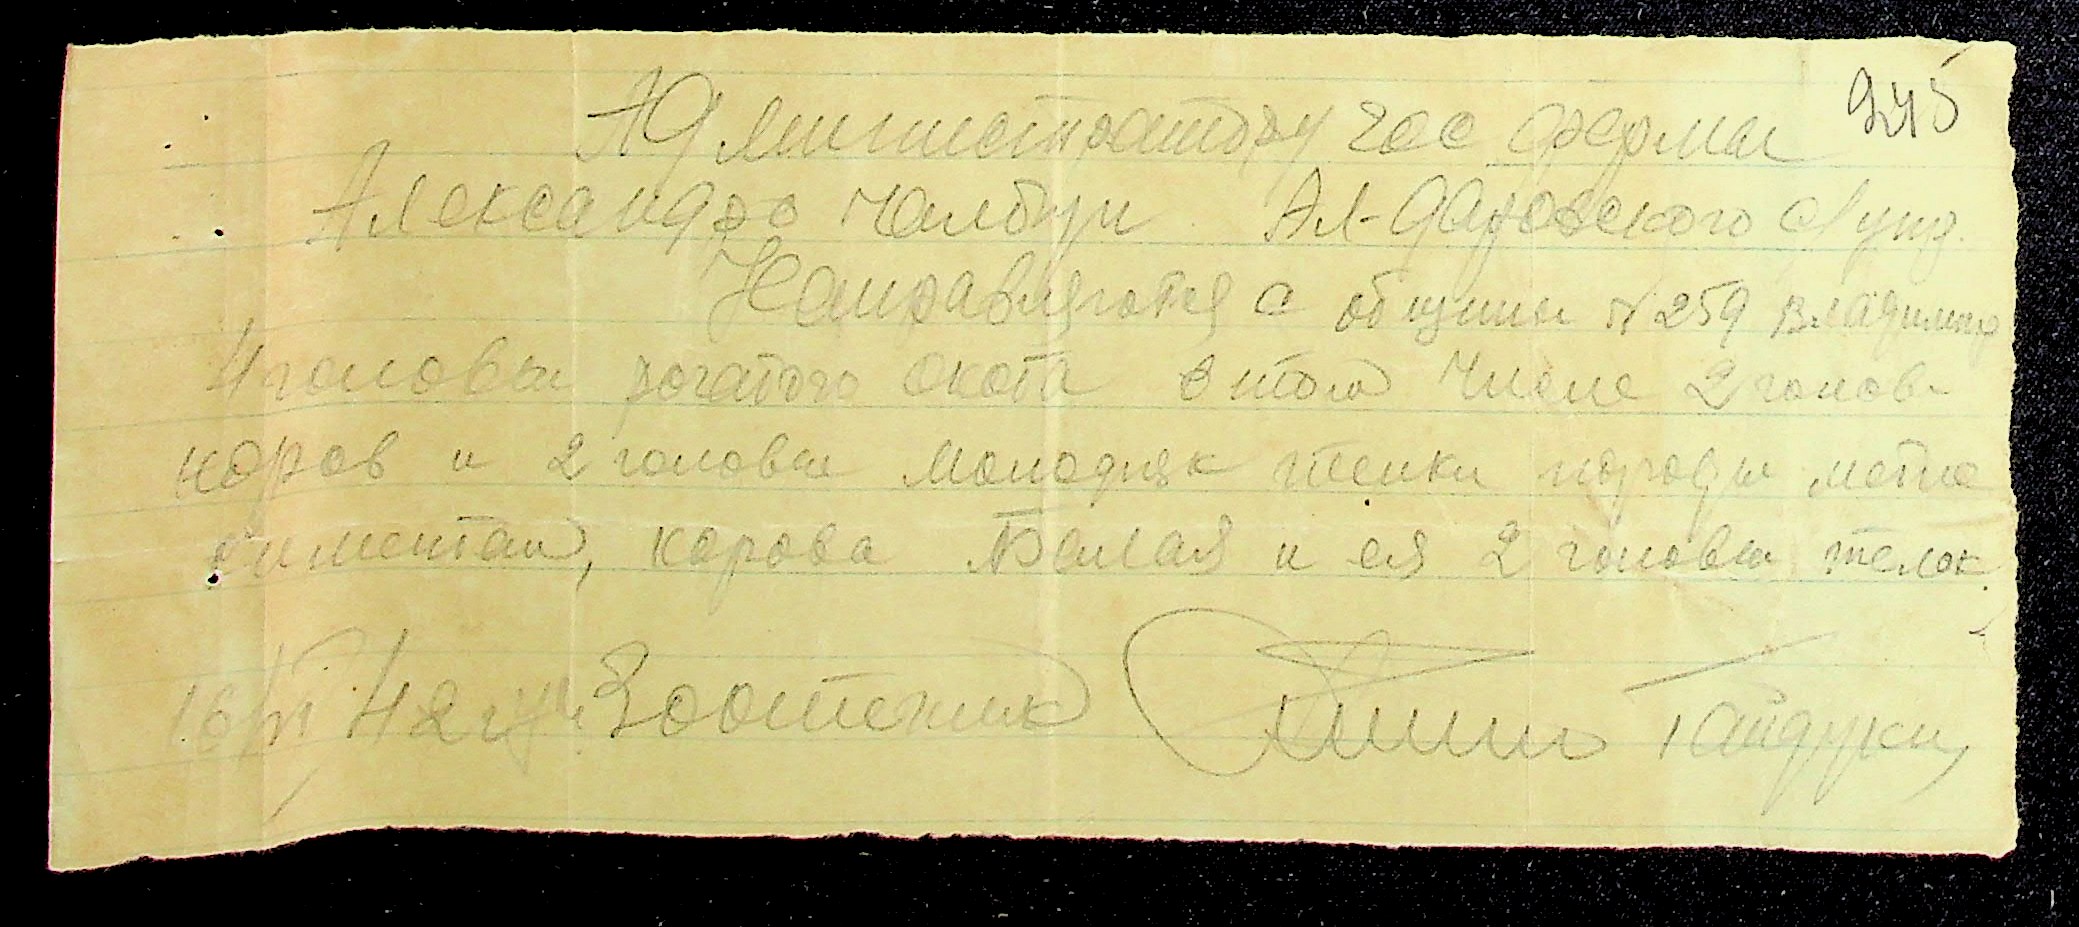 245
Администратору гос фермы
Александро Чалбур Ал-даровского с/упр.
Направляются с общины №259 Владимир
4 головы рогатого скота в том числе 2 голов-
коров и 2 головы молодняк телки породы метис
симентал, корова Белая и ея 2 головы телок.
16/VI 42 г. Зоотехник Гайдукин